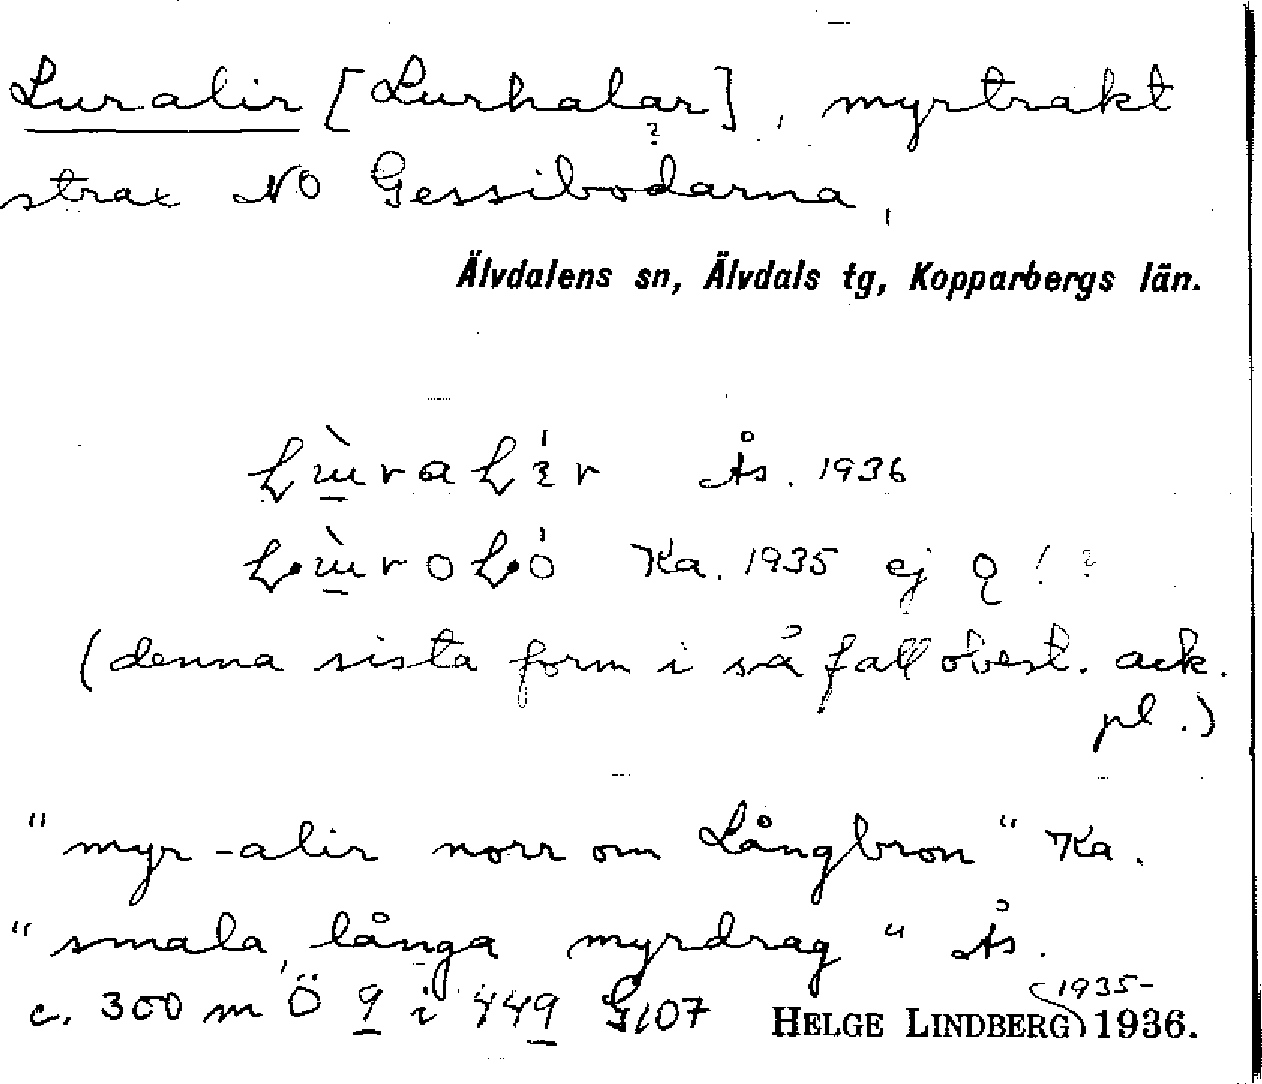 Luralir [Lurhalar], myrtrakt
?
strax NO Gessibodarna,
Älvdalens sn, Älvdals tg, Kopparbergs län.
Ås. 1936
Ka. 1935 ej
(denna sista form i så fall obest. ack.
pl.)
"myr-alir norr om Långbron" Ka.
"smala, långa myrdrag" Ås.
c. 300 m Ö 9 i 449 G107
1935-
HELGE LINDBERG 1936.